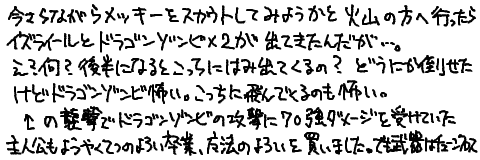 今さらながらメッキーをスカウトしてみようかと火山の方へ行ったら
イズライールとドラゴンゾンビ×2が出てきたんだが…。
え?何?後半になるとこっちにはみ出てくるの?どうにか倒せた
けどドラゴンゾンビ怖い。こっちに飛んでくるのも怖い。
↑の襲撃でドラゴンゾンビの攻撃に70強ダメージを受けていた
主人公もようやくてつのよろい卒業、魔法のよろいを買いました。でも武器はチェーンクロス